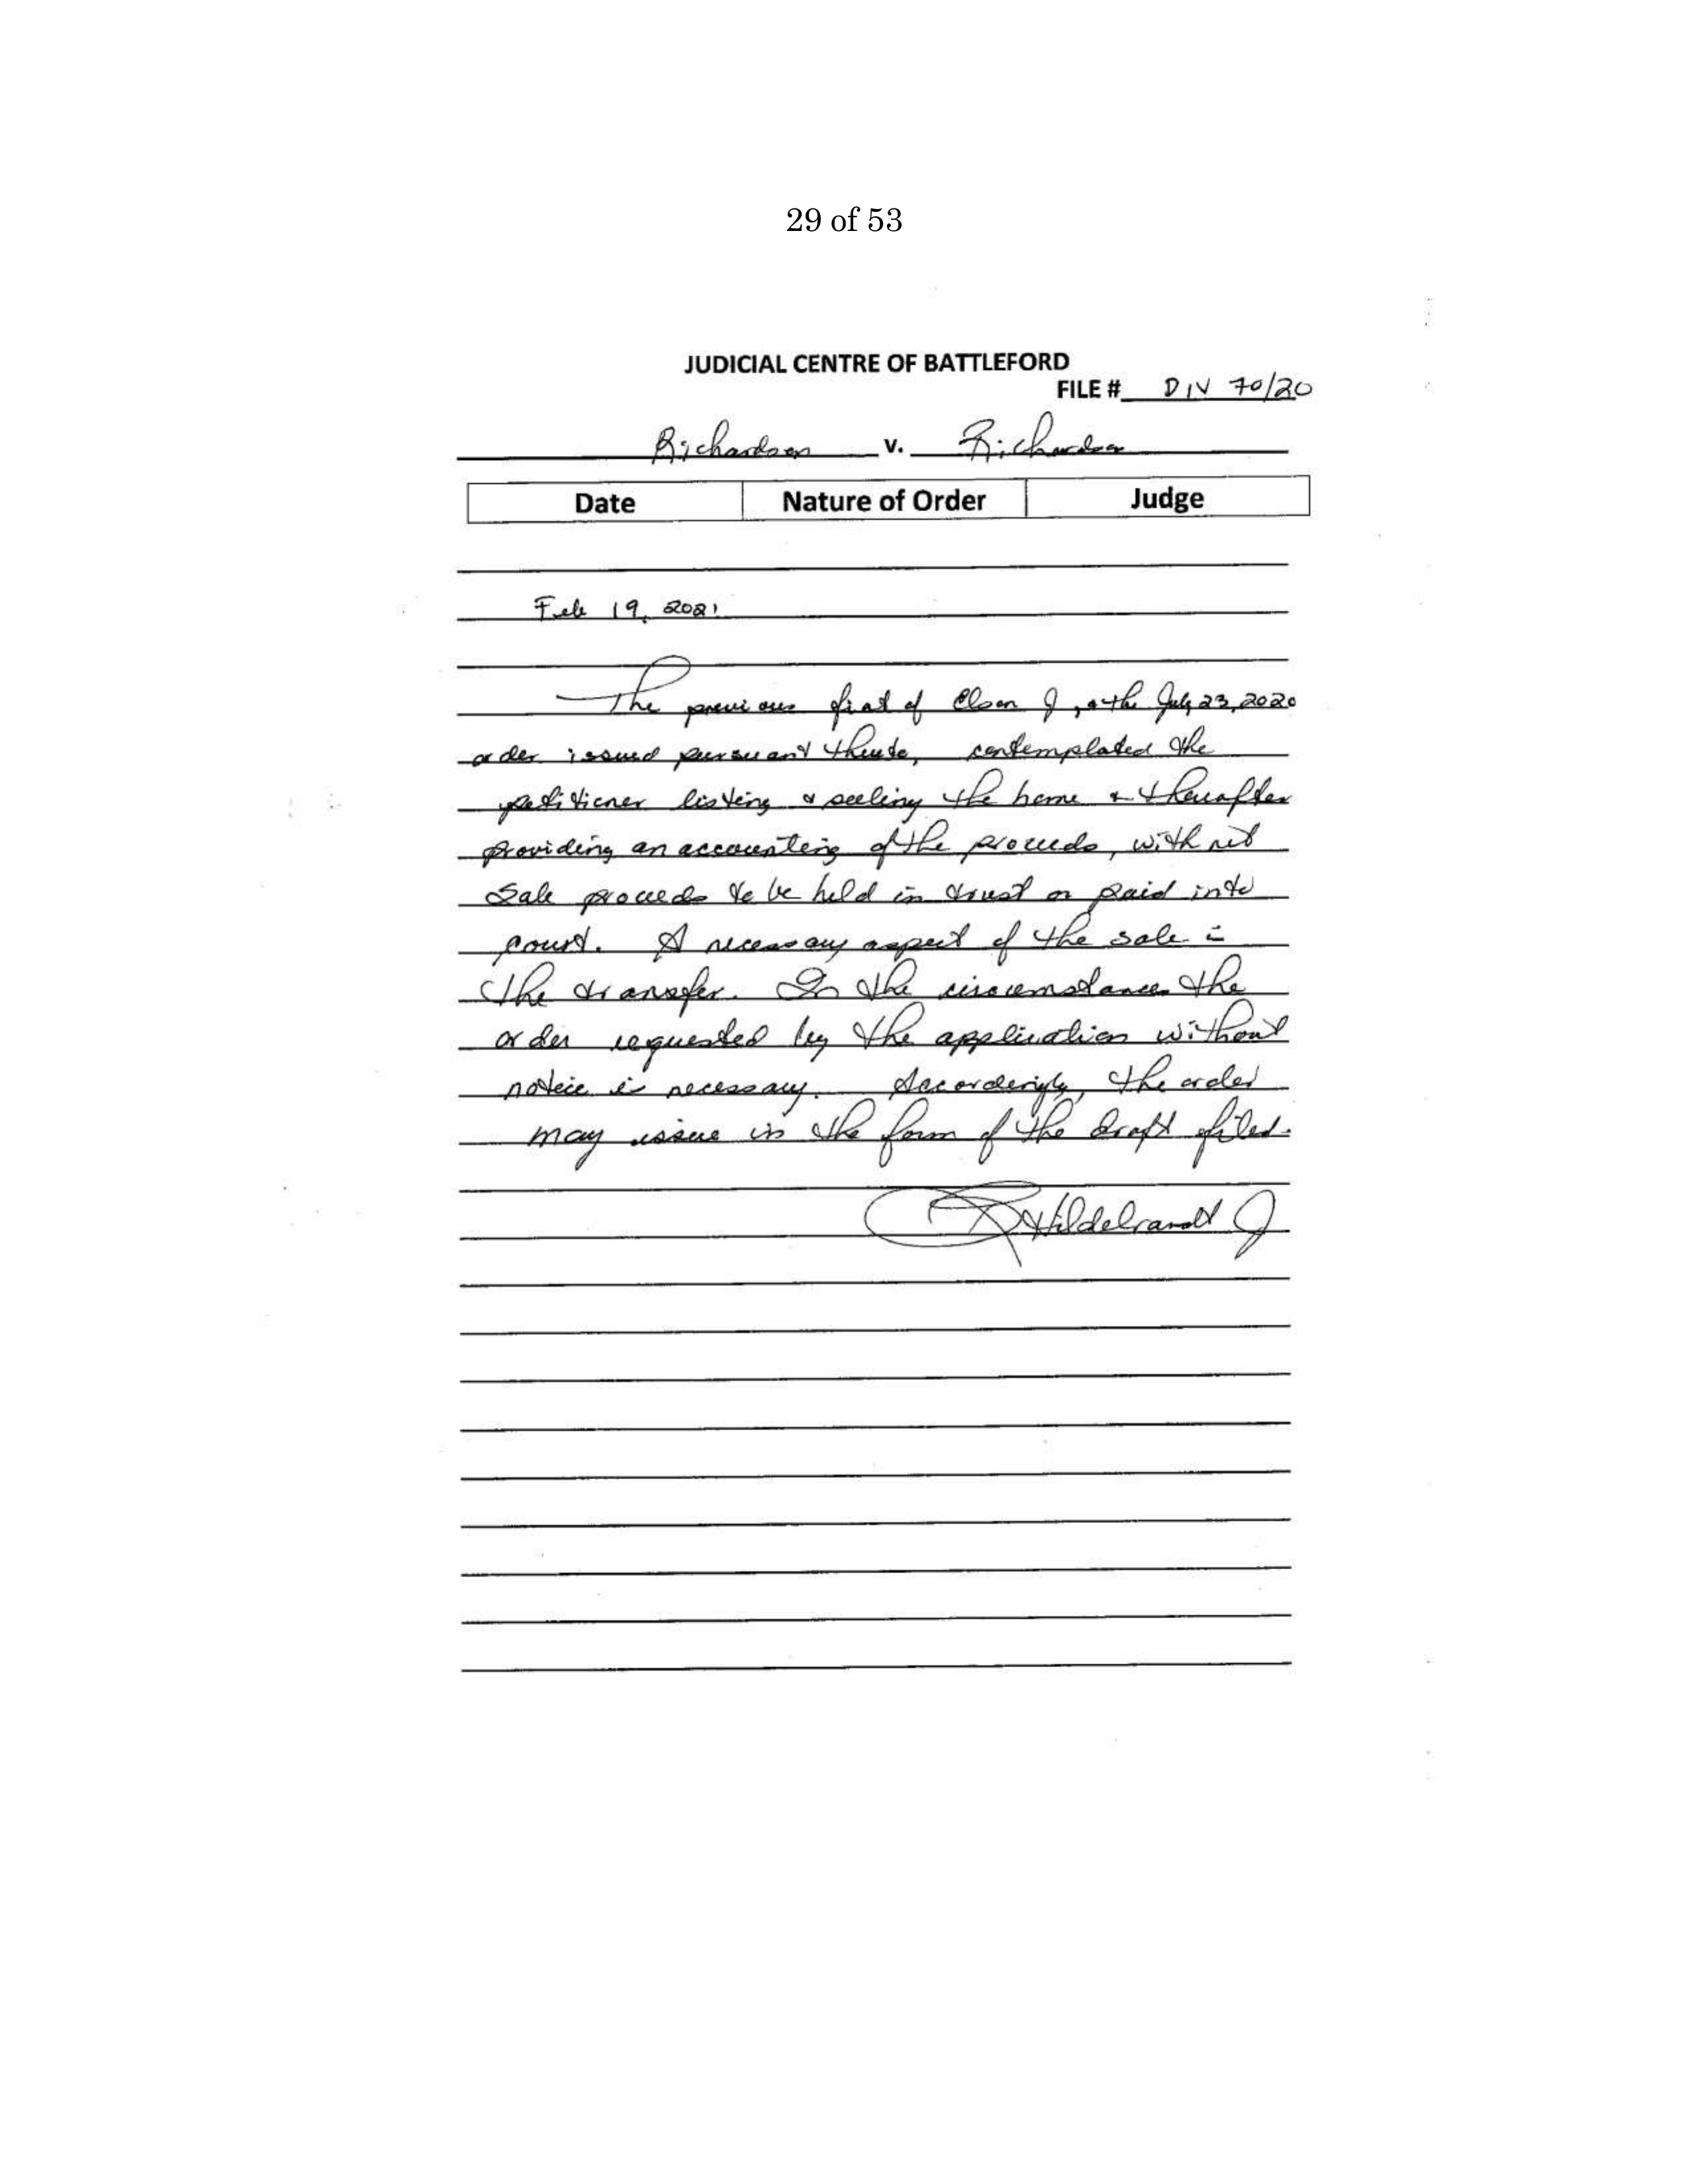 29 of 53
JUDICIAL CENTRE OF BATTLEFORD
FILE # DIV 70/20
Richardson v. Richardson
Date Nature of Order Judge
Feb 19, 2021
The previous fiat of Elson J, & the July 23, 2020
order issued pursuant thereto, contemplated the
petitioner listing & selling the home & thereafter
providing an accounting of the proceeds, with net
sale proceeds to be held in trust or paid into
court. A necessary aspect of the sale is
the transfer. In the circumstances the
order requested by the application without
notice is necessary. Accordingly, the order
may issue in the form of the draft filed.
Hildebrandt J